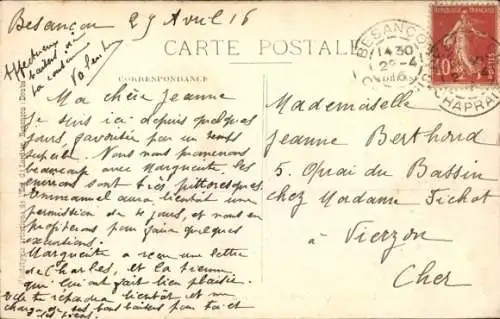 Besançon 29 Avril 16
CARTE POSTALE
CORRESPONDANCE
Affectueux
baisers de
ta cousine
BESANÇON
14 30
10
Ma chère Jeanne
Je suis ici depuis quelques
jours, favorisée par un temps
superbe. Nous nous promenons
beaucoup avec Marguerite, les
environs sont très pittoresques.
Emmanuel aura bientôt une
permission de jours, et nous en
profiterons pour faire quelques
excursions.
Marguerite a reçu une lettre
de Charles, et la tienne
qui lui ont fait bien plaisir.
Elle te répondra bientôt et me
charge de ses bons baisers pour toi et
les tiens.
Mademoiselle
Jeanne Berthoud
5, Quai du Bassin
chez Madame Fichot
à Vierzon
Cher